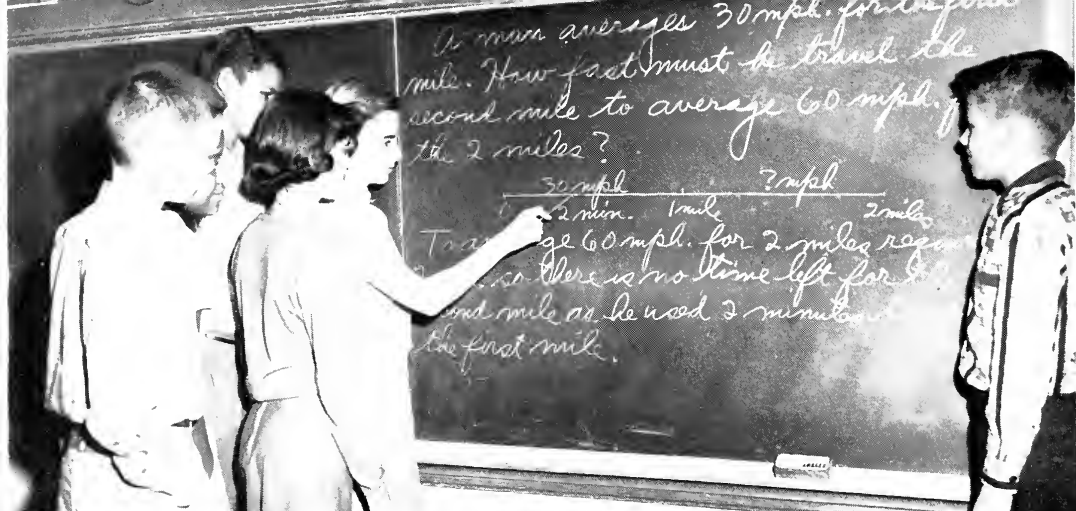 A man averages 30 mph. for the first
mile. How fast must he travel the
second mile to average 60 mph.
the 2 miles?
30 mph ? mph
2 min. 1 mile 2 miles
ge 60 mph. for 2 miles
so there is no time left for
mile as he used 2 minutes
the first mile.